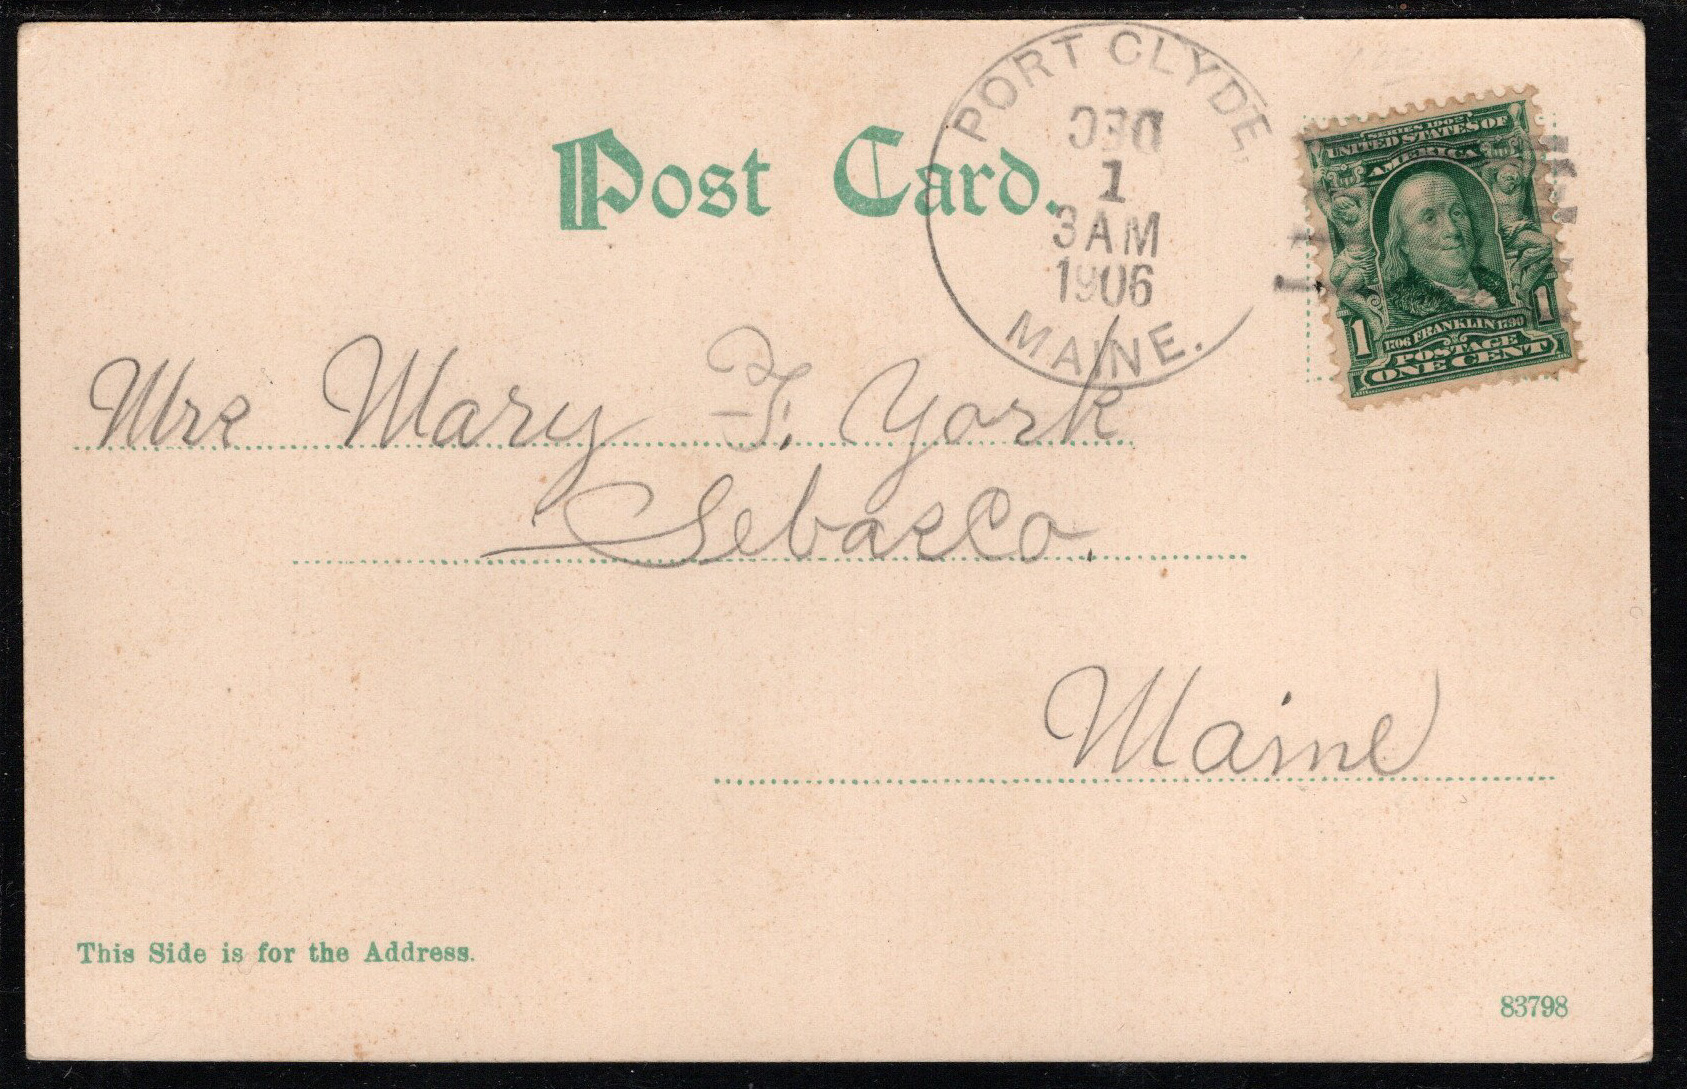 Post Card.
PORT CLYDE,
DEC
1
3 AM
1906
MAINE.
SERIES 1902
UNITED STATES OF
AMERICA
1 1
1706 FRANKLIN 1790
POSTAGE
ONE CENT
Mrs Mary F. York
Sebasco.
Maine
This Side is for the Address.
83798